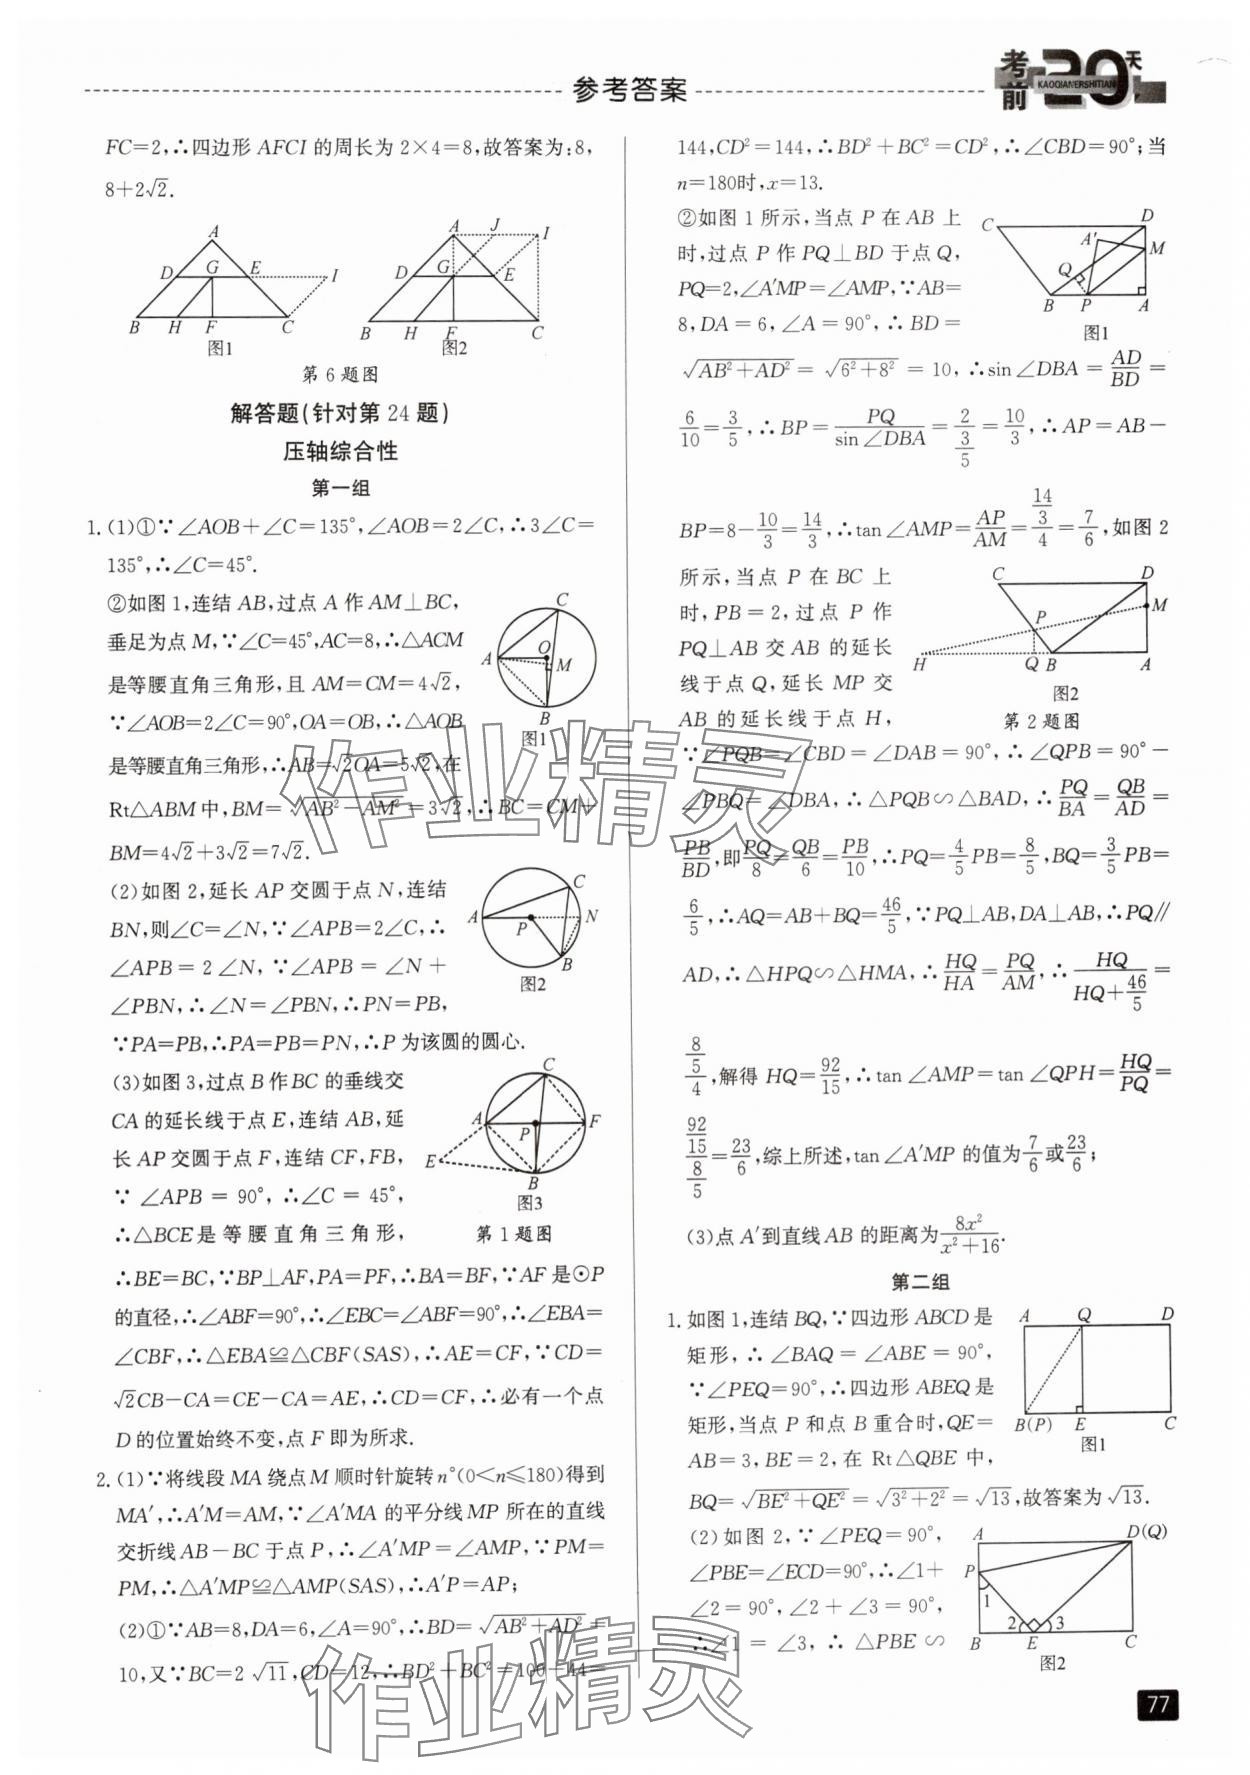 参考答案
考前20天
KAOQIANERSHITIAN
FC=2,∴四边形 AFCI 的周长为 2×4=8,故答案为:8,
8+2√2.
A
D G E I
B H F C
图1
A J I
D G E
B H F C
图2
第 6 题图
解答题(针对第 24 题)
压轴综合性
第一组
1.(1)①∵∠AOB+∠C=135°,∠AOB=2∠C,∴3∠C=
135°,∴∠C=45°.
②如图 1,连结 AB,过点 A 作 AM⊥BC,
垂足为点 M,∵∠C=45°,AC=8,∴△ACM
是等腰直角三角形,且 AM=CM=4√2,
∵∠AOB=2∠C=90°,OA=OB,∴△AOB
是等腰直角三角形,∴AB=√2OA=5√2,在
Rt△ABM 中,BM=√(AB²−AM²)=3√2,∴BC=CM+
BM=4√2+3√2=7√2.
C
O
A M
B
图1
(2)如图 2,延长 AP 交圆于点 N,连结
BN,则∠C=∠N,∵∠APB=2∠C,∴
∠APB=2∠N,∵∠APB=∠N+
∠PBN,∴∠N=∠PBN,∴PN=PB,
∵PA=PB,∴PA=PB=PN,∴P 为该圆的圆心.
C
A P N
B
图2
(3)如图 3,过点 B 作 BC 的垂线交
CA 的延长线于点 E,连结 AB,延
长 AP 交圆于点 F,连结 CF,FB,
∵ ∠APB = 90°, ∴∠C = 45°,
∴△BCE 是等腰直角三角形,
C
A P F
E
B
图3
第 1 题图
∴BE=BC,∵BP⊥AF,PA=PF,∴BA=BF,∵AF 是⊙P
的直径,∴∠ABF=90°,∴∠EBC=∠ABF=90°,∴∠EBA=
∠CBF,∴△EBA≌△CBF(SAS),∴AE=CF,∵CD=
√2CB−CA=CE−CA=AE,∴CD=CF,∴必有一个点
D 的位置始终不变,点 F 即为所求.
2.(1)∵将线段 MA 绕点 M 顺时针旋转 n°(0<n≤180)得到
MA′,∴A′M=AM,∵∠A′MA 的平分线 MP 所在的直线
交折线 AB−BC 于点 P,∴∠A′MP=∠AMP,∵PM=
PM,∴△A′MP≌△AMP(SAS),∴A′P=AP;
(2)①∵AB=8,DA=6,∠A=90°,∴BD=√(AB²+AD²)=
10,又∵BC=2√11,CD=12,∴BD²+BC²=100+44=
144,CD²=144,∴BD²+BC²=CD²,∴∠CBD=90°;当
n=180时,x=13.
②如图 1 所示,当点 P 在 AB 上
时,过点 P 作 PQ⊥BD 于点 Q,
PQ=2,∠A′MP=∠AMP,∵AB=
8,DA=6,∠A=90°,∴BD=
C D
A′ M
Q
B P A
图1
√(AB²+AD²)=√(6²+8²)=10,∴sin∠DBA=AD/BD=
6/10=3/5,∴BP=PQ/sin∠DBA=2/(3/5)=10/3,∴AP=AB−
BP=8−10/3=14/3,∴tan∠AMP=AP/AM=(14/3)/4=7/6,如图 2
所示,当点 P 在 BC 上
时,PB=2,过点 P 作
PQ⊥AB 交 AB 的延长
线于点 Q,延长 MP 交
AB 的延长线于点 H,
C D
P M
H Q B A
图2
第 2 题图
∵∠PQB=∠CBD=∠DAB=90°,∴∠QPB=90°−
∠PBQ=∠DBA,∴△PQB∽△BAD,∴PQ/BA=QB/AD=
PB/BD,即PQ/8=QB/6=PB/10,∴PQ=4/5PB=8/5,BQ=3/5PB=
6/5,∴AQ=AB+BQ=46/5,∵PQ⊥AB,DA⊥AB,∴PQ∥
AD,∴△HPQ∽△HMA,∴HQ/HA=PQ/AM,∴HQ/(HQ+46/5)=
(8/5)/4,解得 HQ=92/15,∴tan∠AMP=tan∠QPH=HQ/PQ=
(92/15)/(8/5)=23/6,综上所述,tan∠A′MP 的值为7/6或23/6;
(3)点 A′到直线 AB 的距离为8x²/(x²+16).
第二组
1.如图 1,连结 BQ,∵四边形 ABCD 是
矩形,∴∠BAQ=∠ABE=90°,
∵∠PEQ=90°,∴四边形 ABEQ 是
矩形,当点 P 和点 B 重合时,QE=
AB=3,BE=2,在 Rt△QBE 中,
A Q D
B(P) E C
图1
BQ=√(BE²+QE²)=√(3²+2²)=√13,故答案为√13.
(2)如图 2,∵∠PEQ=90°,
∠PBE=∠ECD=90°,∴∠1+
∠2=90°,∠2+∠3=90°,
∴∠1=∠3,∴△PBE∽
A D(Q)
P
1
2 3
B E C
图2
77
作业精灵
作业精灵